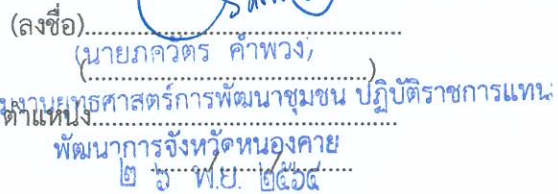 (ลงชื่อ)
(นายภควัตร คำพวง)
(....................)
ตำแหน่ง
ยุทธศาสตร์การพัฒนาชุมชน ปฏิบัติราชการแทน
พัฒนาการจังหวัดหนองคาย
๒ ๖ พ.ย. ๒๕๖๔